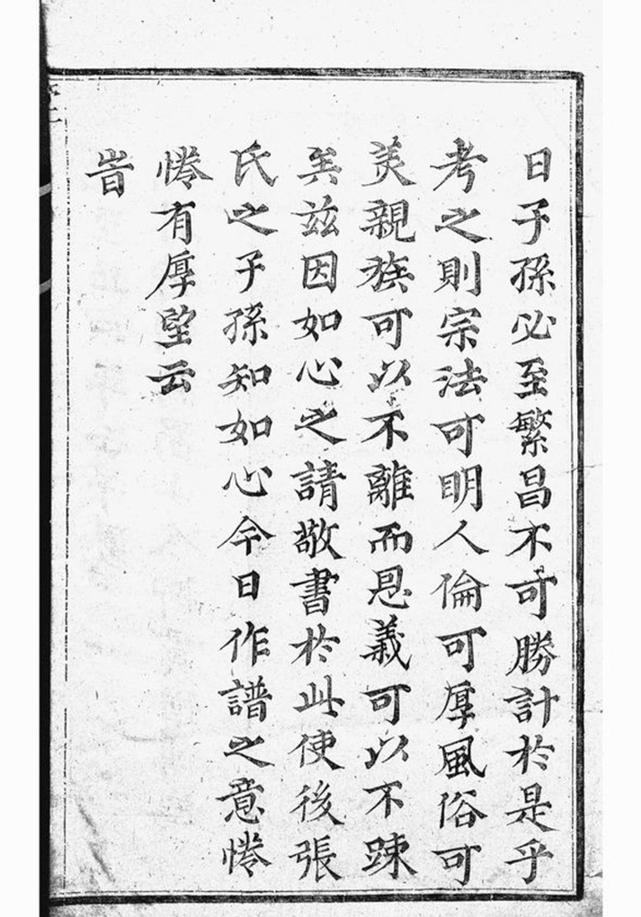 日子孫必至繁昌不可勝計於是乎
考之則宗法可明人倫可厚風俗可
美親族可以不離而恩義可以不踈
矣茲因如心之請敬書於此使後張
氏之子孫知如心今日作譜之意惓
惓有厚望云
旹